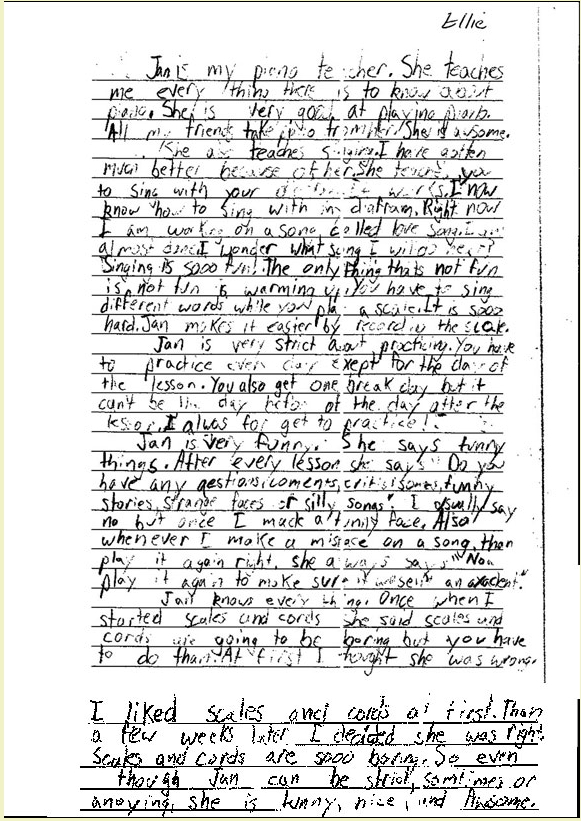 Ellie
Jan is my piano teacher. She teaches
me every thing there is to know about
piano. She is very good at playing piano.
All my friends take from her. She is awsome.
She also teaches singing. I have gotten
much better because of her. She teaches you
to sing with your works. I now
know how to sing with my diafram. Right now
I am working on a song called love song. I am
almost done. I wonder what song I will do next?
Singing is sooo fun. The only thing thats not fun
is not fun is warming up. You have to sing
different words while you play a scale. It is sooo
hard. Jan makes it easier by recording the scale.
Jan is very strict about practicing. You have
to practice every day exept for the day of
the lesson. You also get one break day but it
can't be the day before of the day after the
lesson. I alwas for get to practice!
Jan is very funny. She says funny
things. After every lesson she says "Do you
have any qestions, coments, critisisms, funny
stories, strange faces or silly songs". I usually say
no but once I mack a funny face. Also
whenever I make a mistace on a song, than
play it again right, she always says "Now
play it again to make sure it wasent an axedent."
Jan knows every thing. Once when I
started scales and cords she said scales and
cords are going to be boring but you have
to do tham. At first I thought she was wrong.
I liked scales and cords at first. Than
a few weeks later I decided she was right.
Scales and cords are sooo boring. So even
though Jan can be strict, somtimes or
anoying, she is funny, nice, and Awsome.